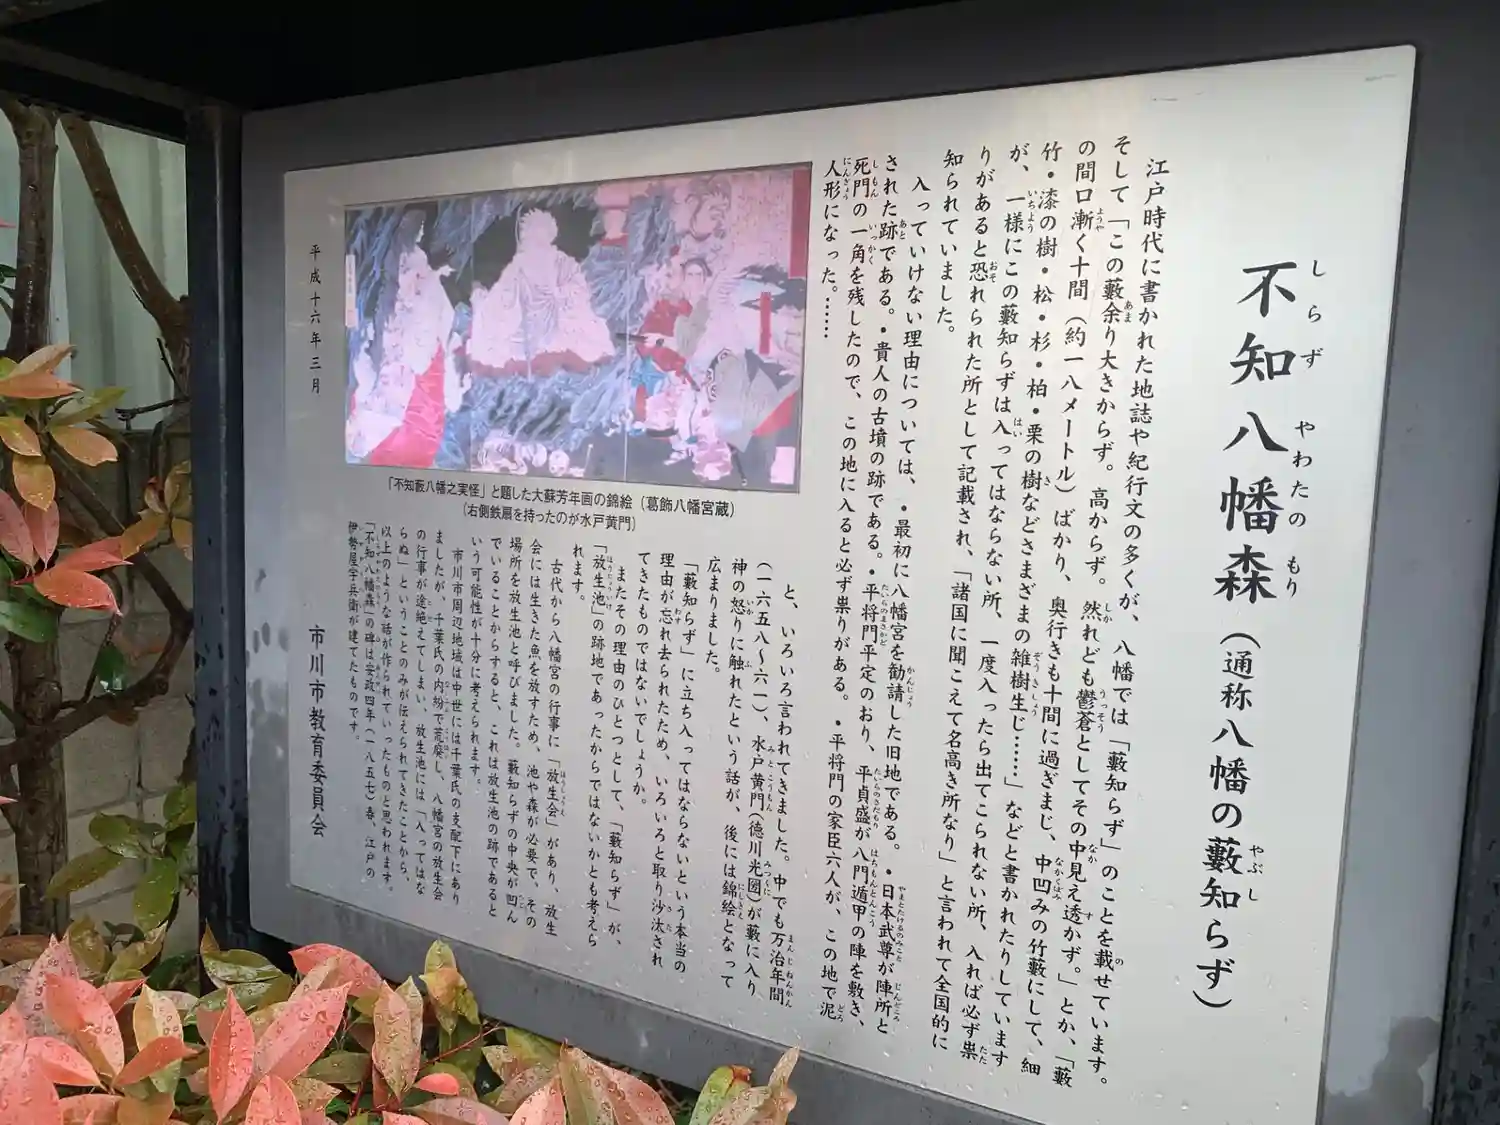 不知八幡森（通称八幡の藪知らず）
しらず やわたの もり やぶし
江戸時代に書かれた地誌や紀行文の多くが、八幡では「藪知らず」のことを載せています。
そして「この藪余り大きからず。高からず。然れども鬱蒼としてその中見え透かず。」とか、「藪
の間口漸く十間（約一八メートル）ばかり、奥行きも十間に過ぎまじ、中凹みの竹藪にして、細
竹・漆の樹・松・杉・柏・栗の樹などさまざまの雑樹生じ……」などと書かれたりしています
が、一様にこの藪知らずは入ってはならない所、一度入ったら出てこられない所、入れば必ず祟
りがあると恐れられた所として記載され、「諸国に聞こえて名高き所なり」と言われて全国的に
知られていました。
入っていけない理由については、・最初に八幡宮を勧請した旧地である。・日本武尊が陣所と
された跡である。・貴人の古墳の跡である。・平将門平定のおり、平貞盛が八門遁甲の陣を敷き、
死門の一角を残したので、この地に入ると必ず祟りがある。・平将門の家臣六人が、この地で泥
人形になった。……
と、いろいろ言われてきました。中でも万治年間
（一六五八～六一）、水戸黄門（徳川光圀）が藪に入り
神の怒りに触れたという話が、後には錦絵となって
広まりました。
「藪知らず」に立ち入ってはならないという本当の
理由が忘れ去られたため、いろいろと取り沙汰され
てきたものではないでしょうか。
またその理由のひとつとして、「藪知らず」が、
「放生池」の跡地であったからではないかとも考えら
れます。
古代から八幡宮の行事に「放生会」があり、放生
会には生きた魚を放すため、池や森が必要で、その
場所を放生池と呼びました。藪知らずの中央が凹ん
でいることからすると、これは放生池の跡であると
いう可能性が十分に考えられます。
市川市周辺地域は中世には千葉氏の支配下にあり
ましたが、千葉氏の内紛で荒廃し、八幡宮の放生会
の行事が途絶えてしまい、放生池には「入ってはな
らぬ」ということのみが伝えられてきたことから、
以上のような話が作られていったものと思われます。
「不知八幡森」の碑は安政四年（一八五七）春、江戸の
伊勢屋宇兵衛が建てたものです。
「不知藪八幡之実怪」と題した大蘇芳年画の錦絵（葛飾八幡宮蔵）
（右側鉄扇を持ったのが水戸黄門）
平成十六年三月
市川市教育委員会